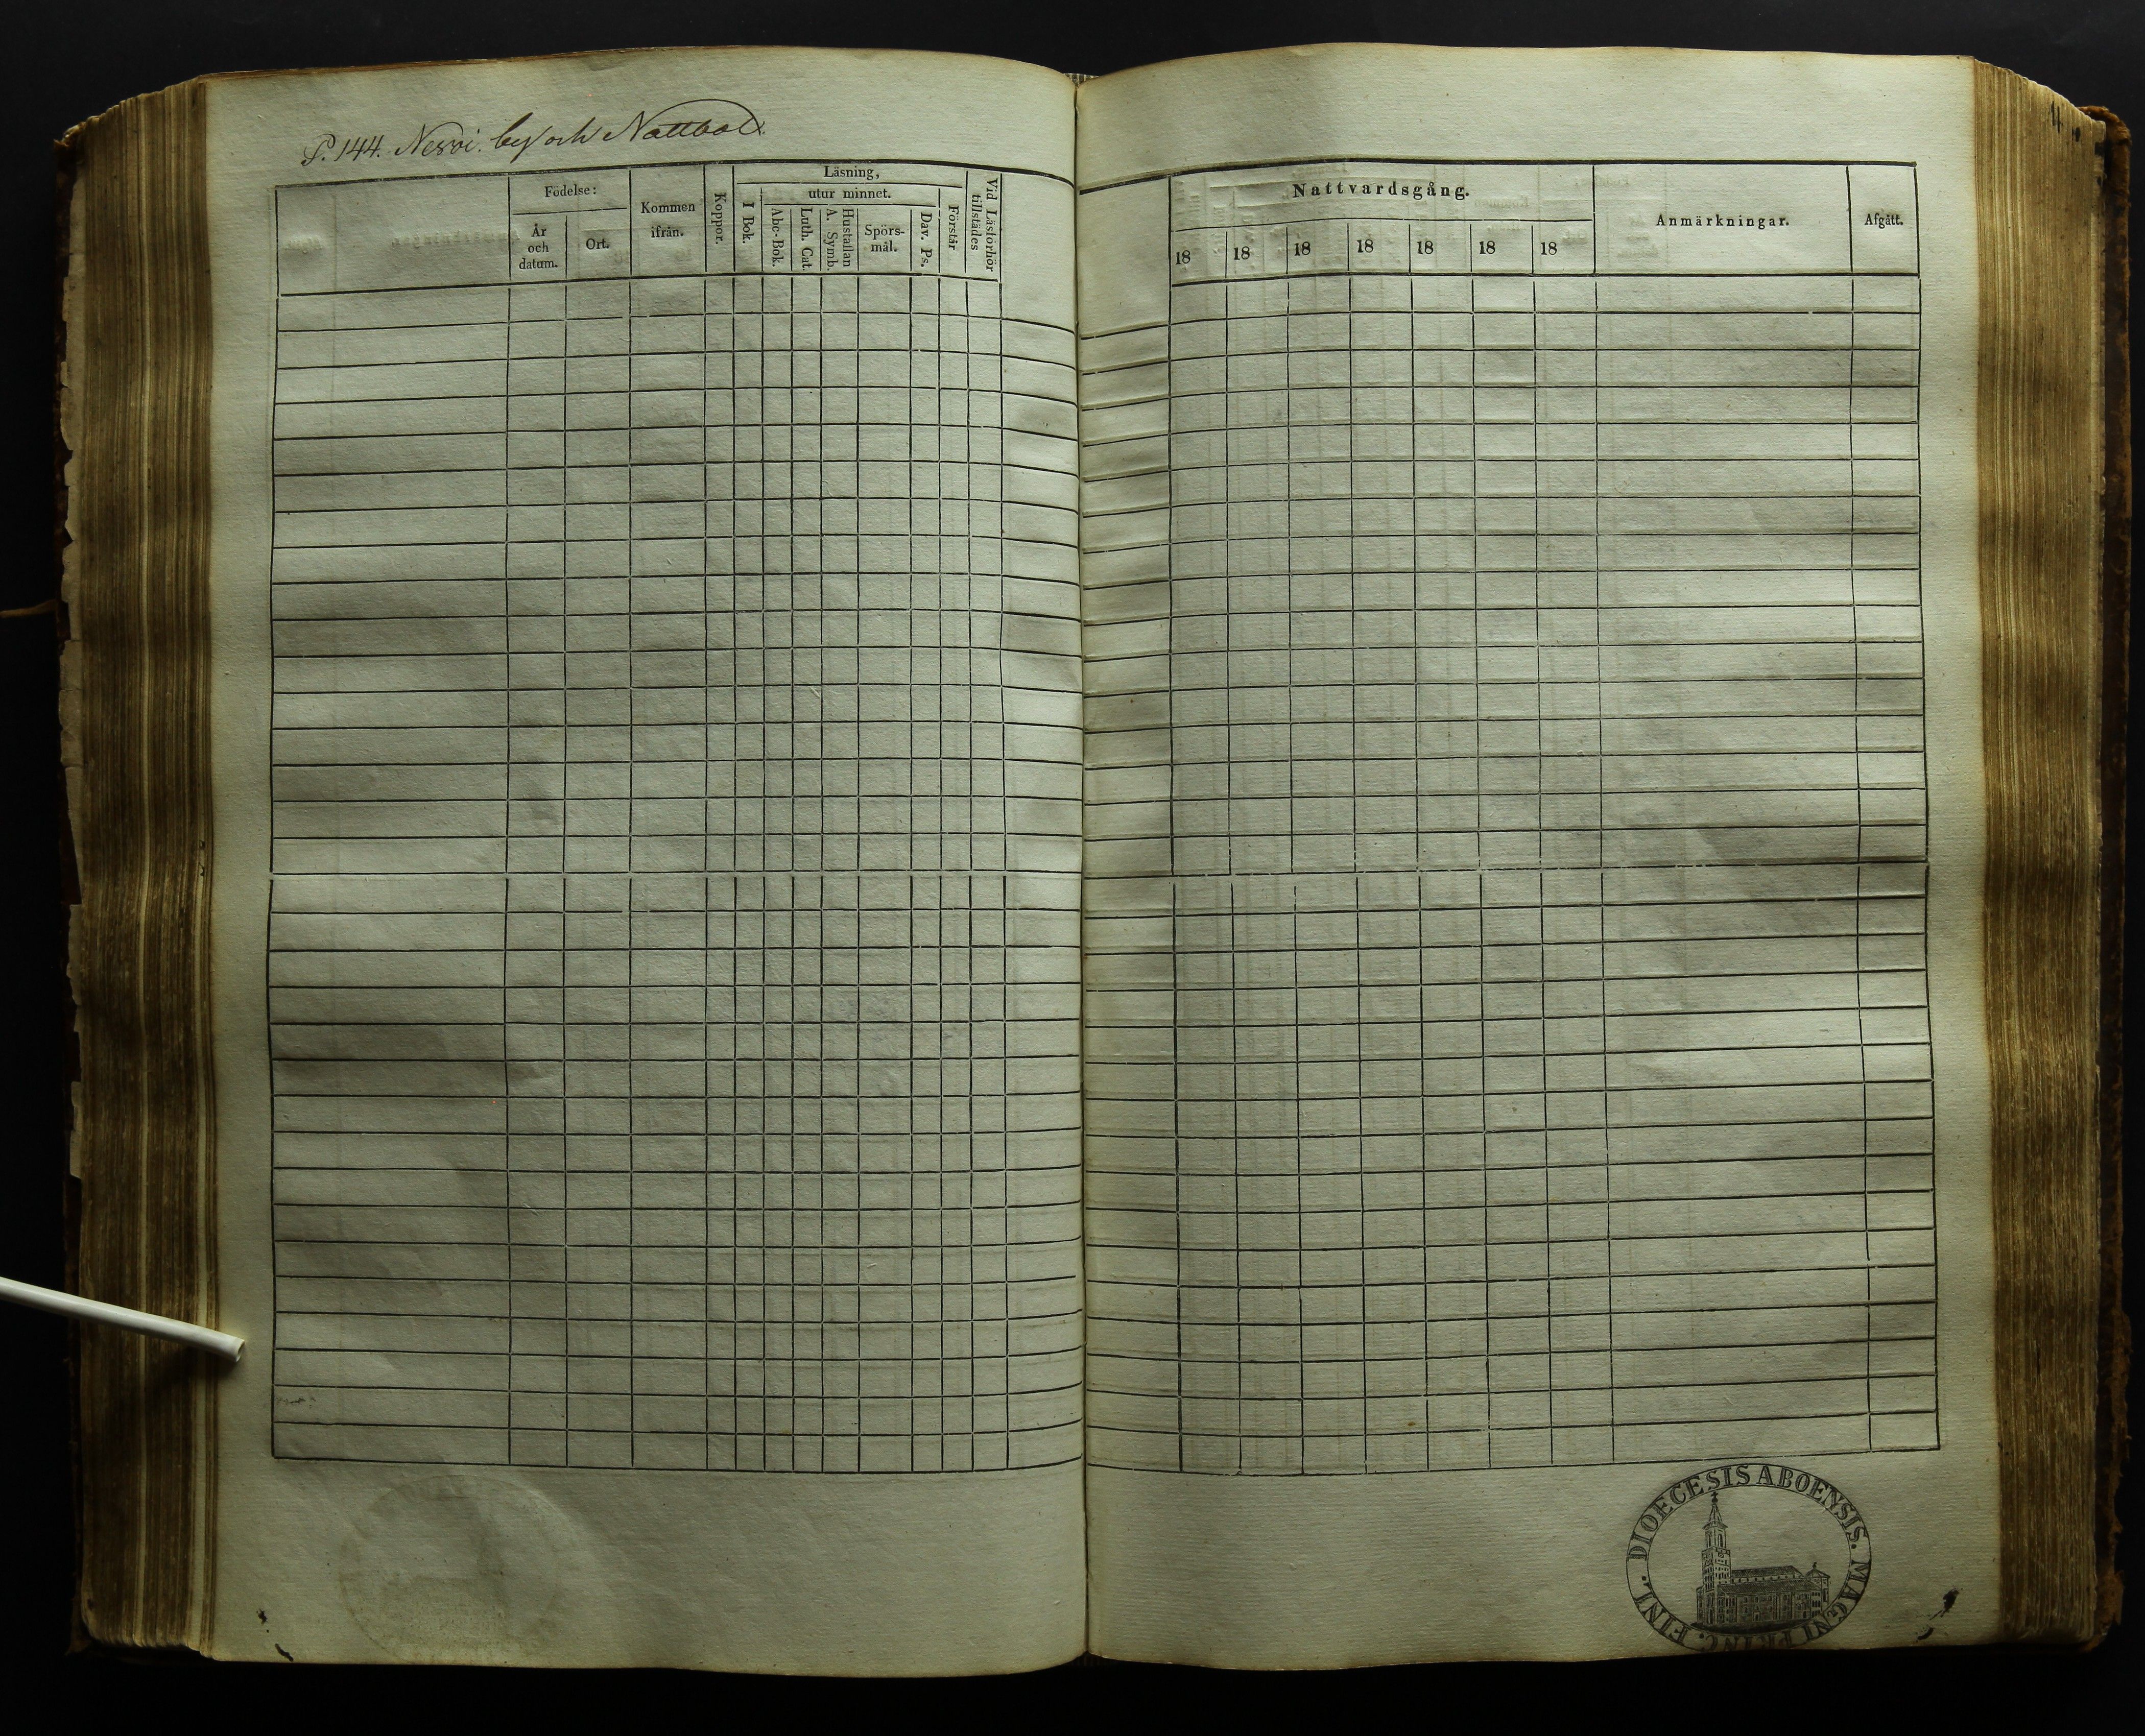 P. 144. Nesvi. by och Nattbol
Födelse:
År
och
datum.
Ort.
Kommen
ifrån.
Koppor.
Läsning,
I Bok.
utur minnet.
Abc-Bok.
Luth. Cat.
Hustaflan
A. Symb.
Spörs-
mål.
Dav. Ps.
Förstår
Vid Läsförhör
tillstädes
Nattvardsgång.
18 18 18 18 18 18 18
Anmärkningar.
Afgått.
DIOECESIS ABOENSIS. MAGNI PRINC. FINL.